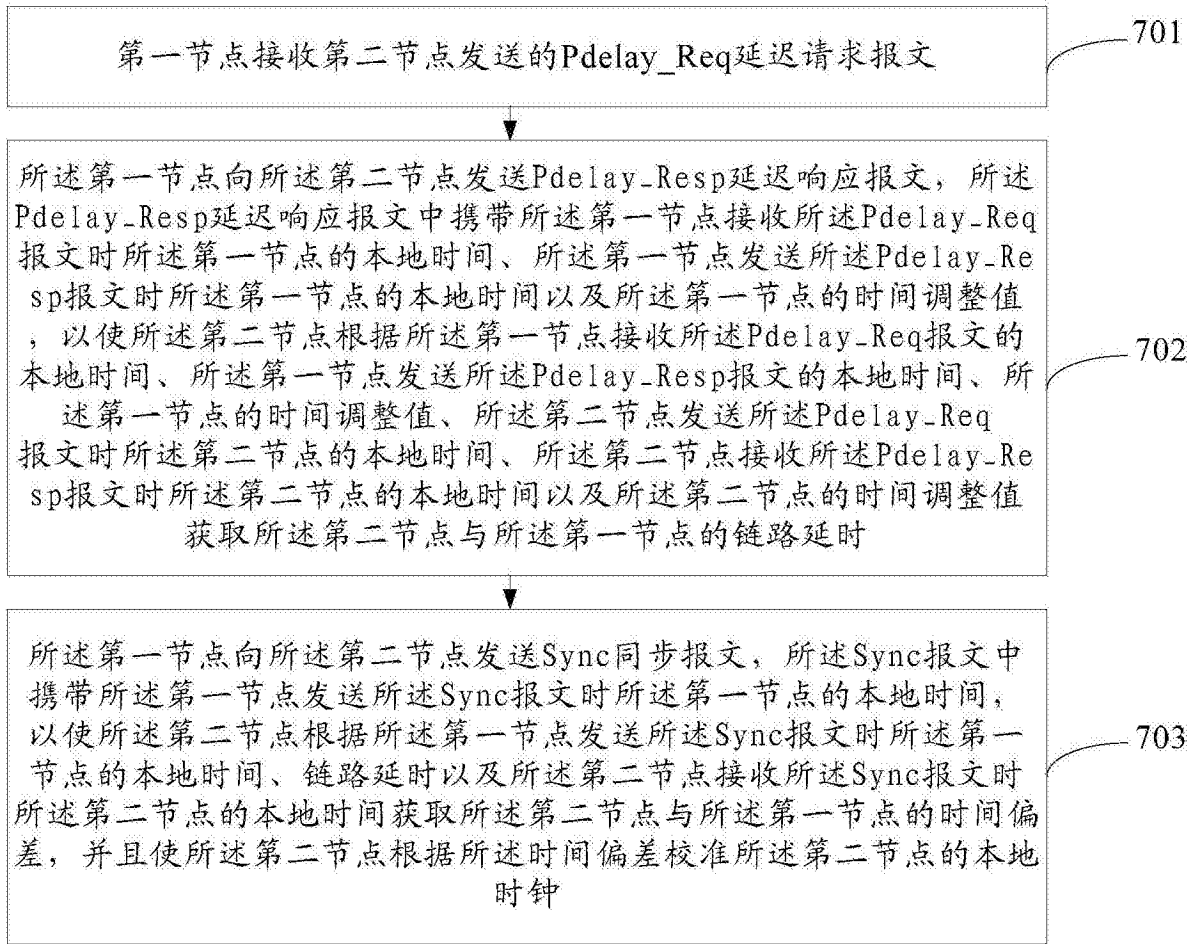 第一节点接收第二节点发送的Pdelay_Req延迟请求报文
701
所述第一节点向所述第二节点发送Pdelay_Resp延迟响应报文，所述
Pdelay_Resp延迟响应报文中携带所述第一节点接收所述Pdelay_Req
报文时所述第一节点的本地时间、所述第一节点发送所述Pdelay_Re
sp报文时所述第一节点的本地时间以及所述第一节点的时间调整值
，以使所述第二节点根据所述第一节点接收所述Pdelay_Req报文的
本地时间、所述第一节点发送所述Pdelay_Resp报文的本地时间、所
述第一节点的时间调整值、所述第二节点发送所述Pdelay_Req
报文时所述第二节点的本地时间、所述第二节点接收所述Pdelay_Re
sp报文时所述第二节点的本地时间以及所述第二节点的时间调整值
获取所述第二节点与所述第一节点的链路延时
702
所述第一节点向所述第二节点发送Sync同步报文，所述Sync报文中
携带所述第一节点发送所述Sync报文时所述第一节点的本地时间，
以使所述第二节点根据所述第一节点发送所述Sync报文时所述第一
节点的本地时间、链路延时以及所述第二节点接收所述Sync报文时
所述第二节点的本地时间获取所述第二节点与所述第一节点的时间偏
差，并且使所述第二节点根据所述时间偏差校准所述第二节点的本地
时钟
703